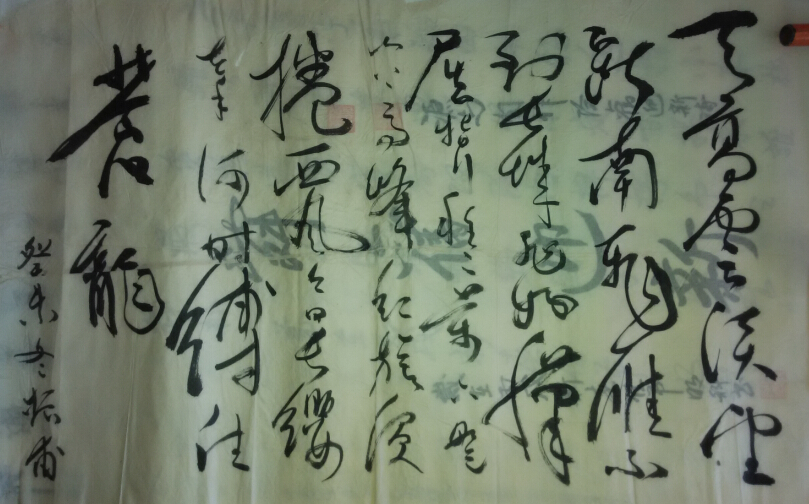 天高雲淡望
断南飛雁不
到長城非好漢
屈指行程二萬六盤
山上高峰紅旗漫
捲西風今日長纓
在手何時縛住
蒼龍
癸未冬